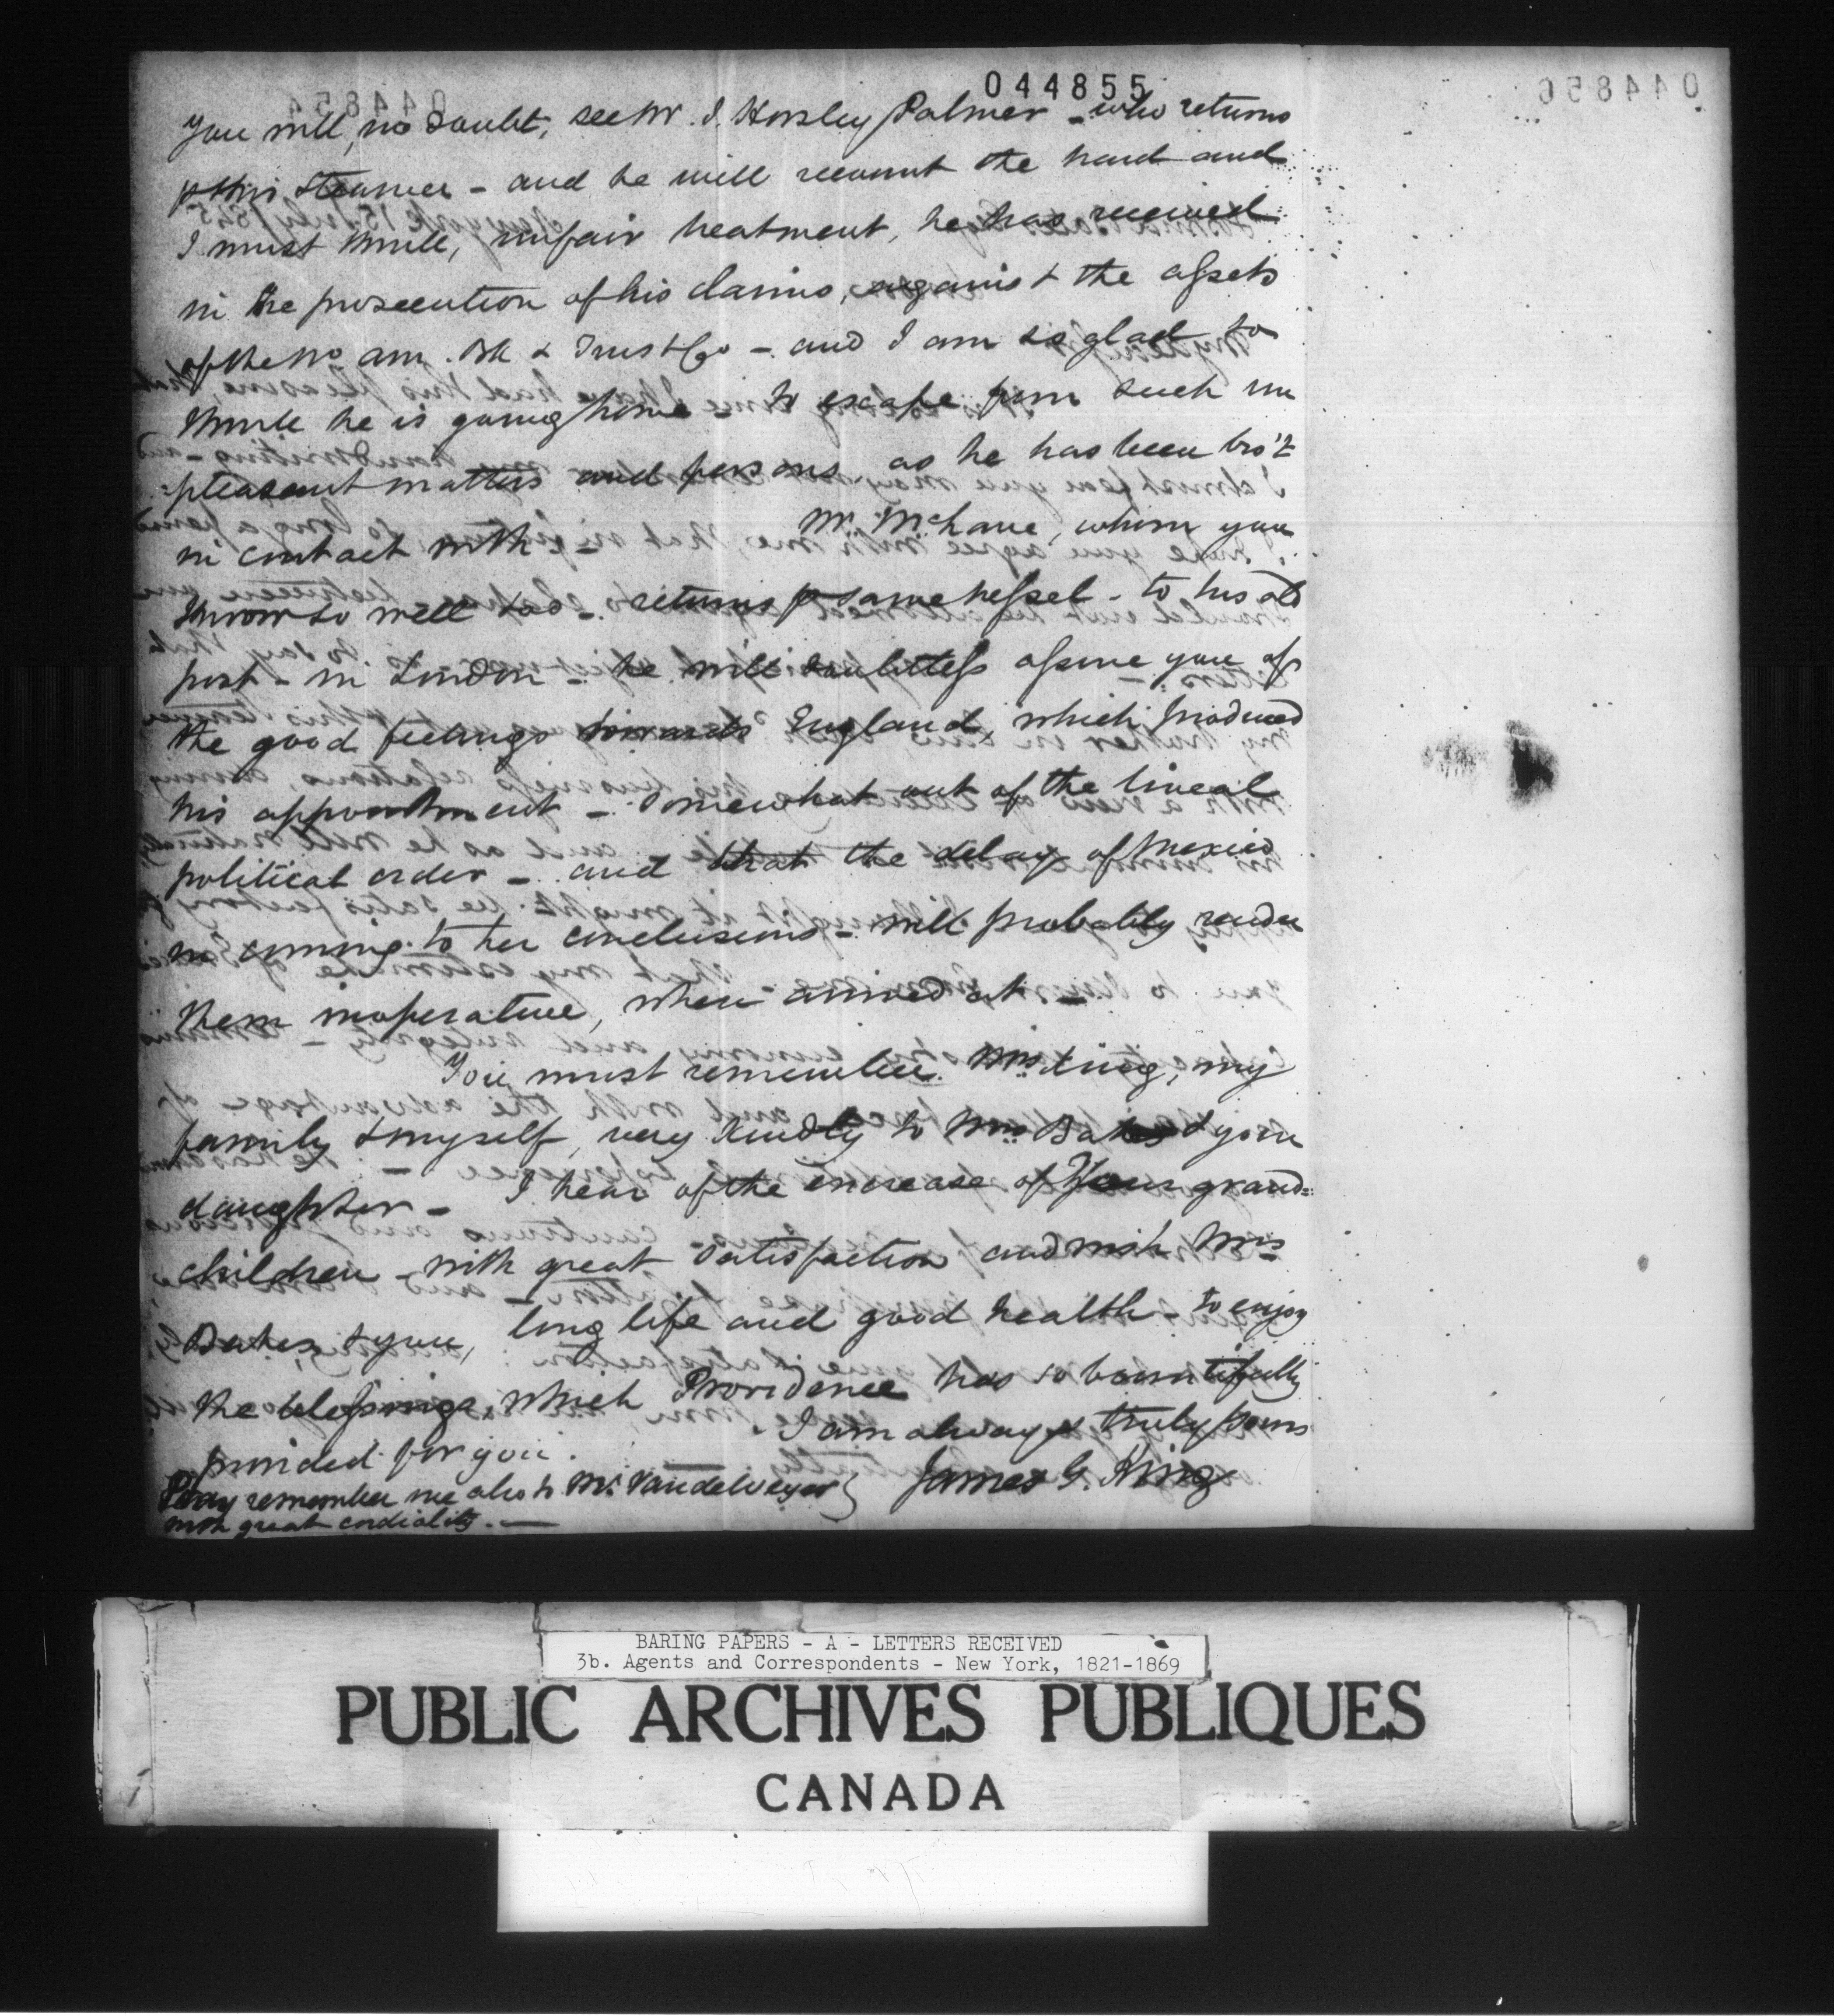 044855
you will, no doubt, see Mr. J. Horsley Palmer - who returns
p this steamer - and he will recount the hard and
I must think, unfair treatment, he has received
in the prosecution of his claims, against the assets
of the No. Am. Bk & Trust Co - and I am so glad to
think he is going home - to escape from such un
pleasant matters and persons as he has been bro't
in contact with -
Mr. McLane, whom you
know so well too - returns p same vessel - to his old
post - in London - he will doubtless assure you of
the good feelings towards England, which produced
his appointment - somewhat out of the lineal
political order - and that the delay of Mexico
in coming to her conclusions - will probably render
them inoperative, when arrived at -
You must remember Mrs. King, my
family & myself, very kindly to Mrs Bates & your
daughter - I hear of the increase of your grand=
children - with great satisfaction and wish Mrs
Bates & you, long life and good health - to enjoy
the blessings, which Providence has so bountifully
provided for you.
I am always truly yours
James G. King
Pray remember me also to Mr. Vandeweyer
with great cordiality. -
BARING PAPERS - A - LETTERS RECEIVED
3b. Agents and Correspondents - New York, 1821-1869
PUBLIC ARCHIVES PUBLIQUES
CANADA